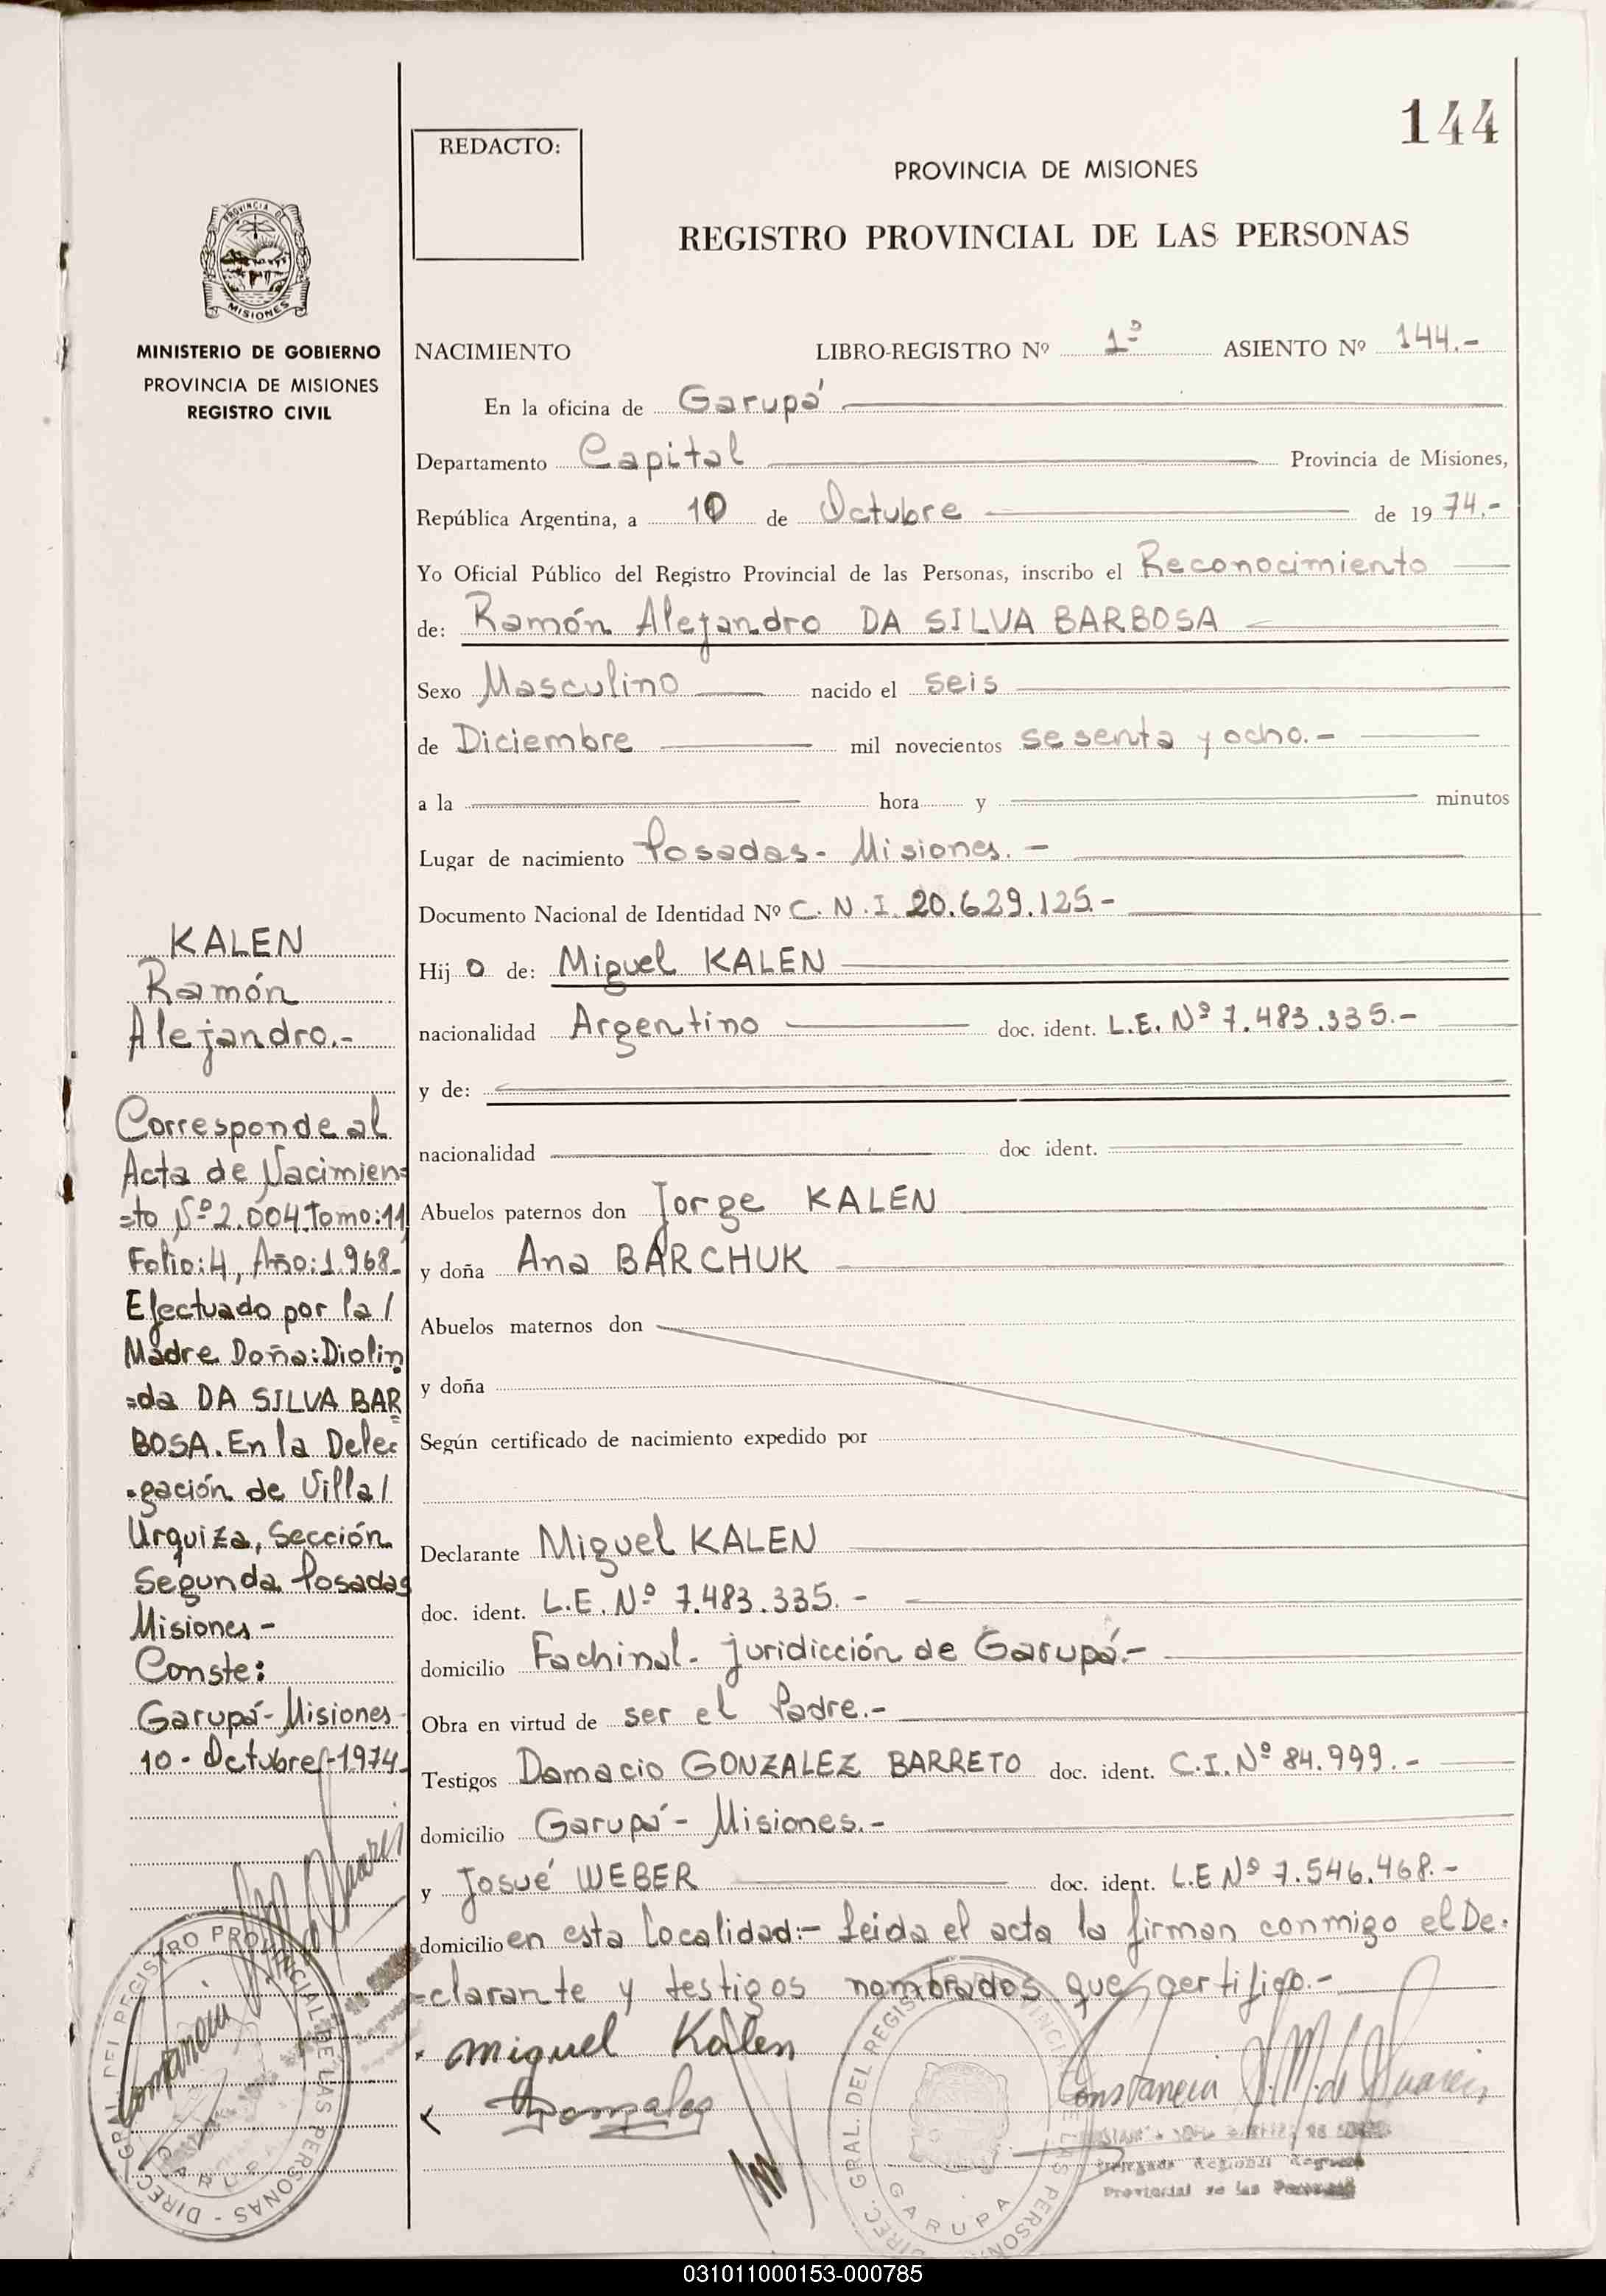 144
REDACTO:
PROVINCIA DE MISIONES
REGISTRO PROVINCIAL DE LAS PERSONAS
PROVINCIA DE
MISIONES
MINISTERIO DE GOBIERNO
PROVINCIA DE MISIONES
REGISTRO CIVIL
NACIMIENTO LIBRO-REGISTRO Nº 1º ASIENTO Nº 144.-
En la oficina de Garupá
Departamento Capital Provincia de Misiones,
República Argentina, a 10 de Octubre de 1974.-
Yo Oficial Público del Registro Provincial de las Personas, inscribo el Reconocimiento
de: Ramón Alejandro DA SILVA BARBOSA
Sexo Masculino nacido el seis
de Diciembre mil novecientos sesenta y ocho.-
a la hora y minutos
Lugar de nacimiento Posadas- Misiones.-
Documento Nacional de Identidad Nº C.N.I. 20.629.125.-
Hijo de: Miguel KALEN
nacionalidad Argentino doc. ident. L.E. Nº 7.483.335.-
y de:
nacionalidad doc. ident.
Abuelos paternos don Jorge KALEN
y doña Ana BARCHUK
Abuelos maternos don
y doña
Según certificado de nacimiento expedido por
Declarante Miguel KALEN
doc. ident. L.E. Nº 7.483.335.-
domicilio Fachinal- juridicción de Garupá.-
Obra en virtud de ser el Padre.-
Testigos Damacio GONZALEZ BARRETO doc. ident. C.I. Nº 84.999.-
domicilio Garupá- Misiones.-
y Josué WEBER doc. ident. L.E Nº 7.546.468.-
domicilio en esta localidad:- Leida el acta la firman conmigo el De-
=clarante y testigos nombrados que certifico.-
miguel Kalen
Gonzales
Constancia
Provincial de las Personas
DIREC. GRAL. DEL REGISTRO PROVINCIAL DE LAS PERSONAS
GARUPA
KALEN
Ramón
Alejandro.-
Corresponde al
Acta de Nacimien=
=to Nº 2.004 Tomo:11
Folio:4, Año:1.968-
Efectuado por la /
Madre Doña:Diolin
=da DA SILVA BAR=
BOSA. En la Dele=
=gación de Villa /
Urquiza, Sección
Segunda Posadas
Misiones-
Conste:
Garupá- Misiones
10- Octubre-1974-
DIREC. GRAL. DEL REGISTRO PROVINCIAL DE LAS PERSONAS -
GARUPA
031011000153-000785